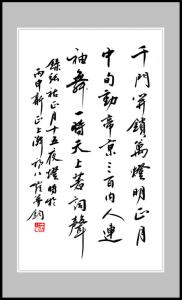 千門開鎖萬燈明正月
中旬動帝京三百內人連
袖舞一時天上著詞聲
錄張祜正月十五夜燈時於
丙申新正上澣